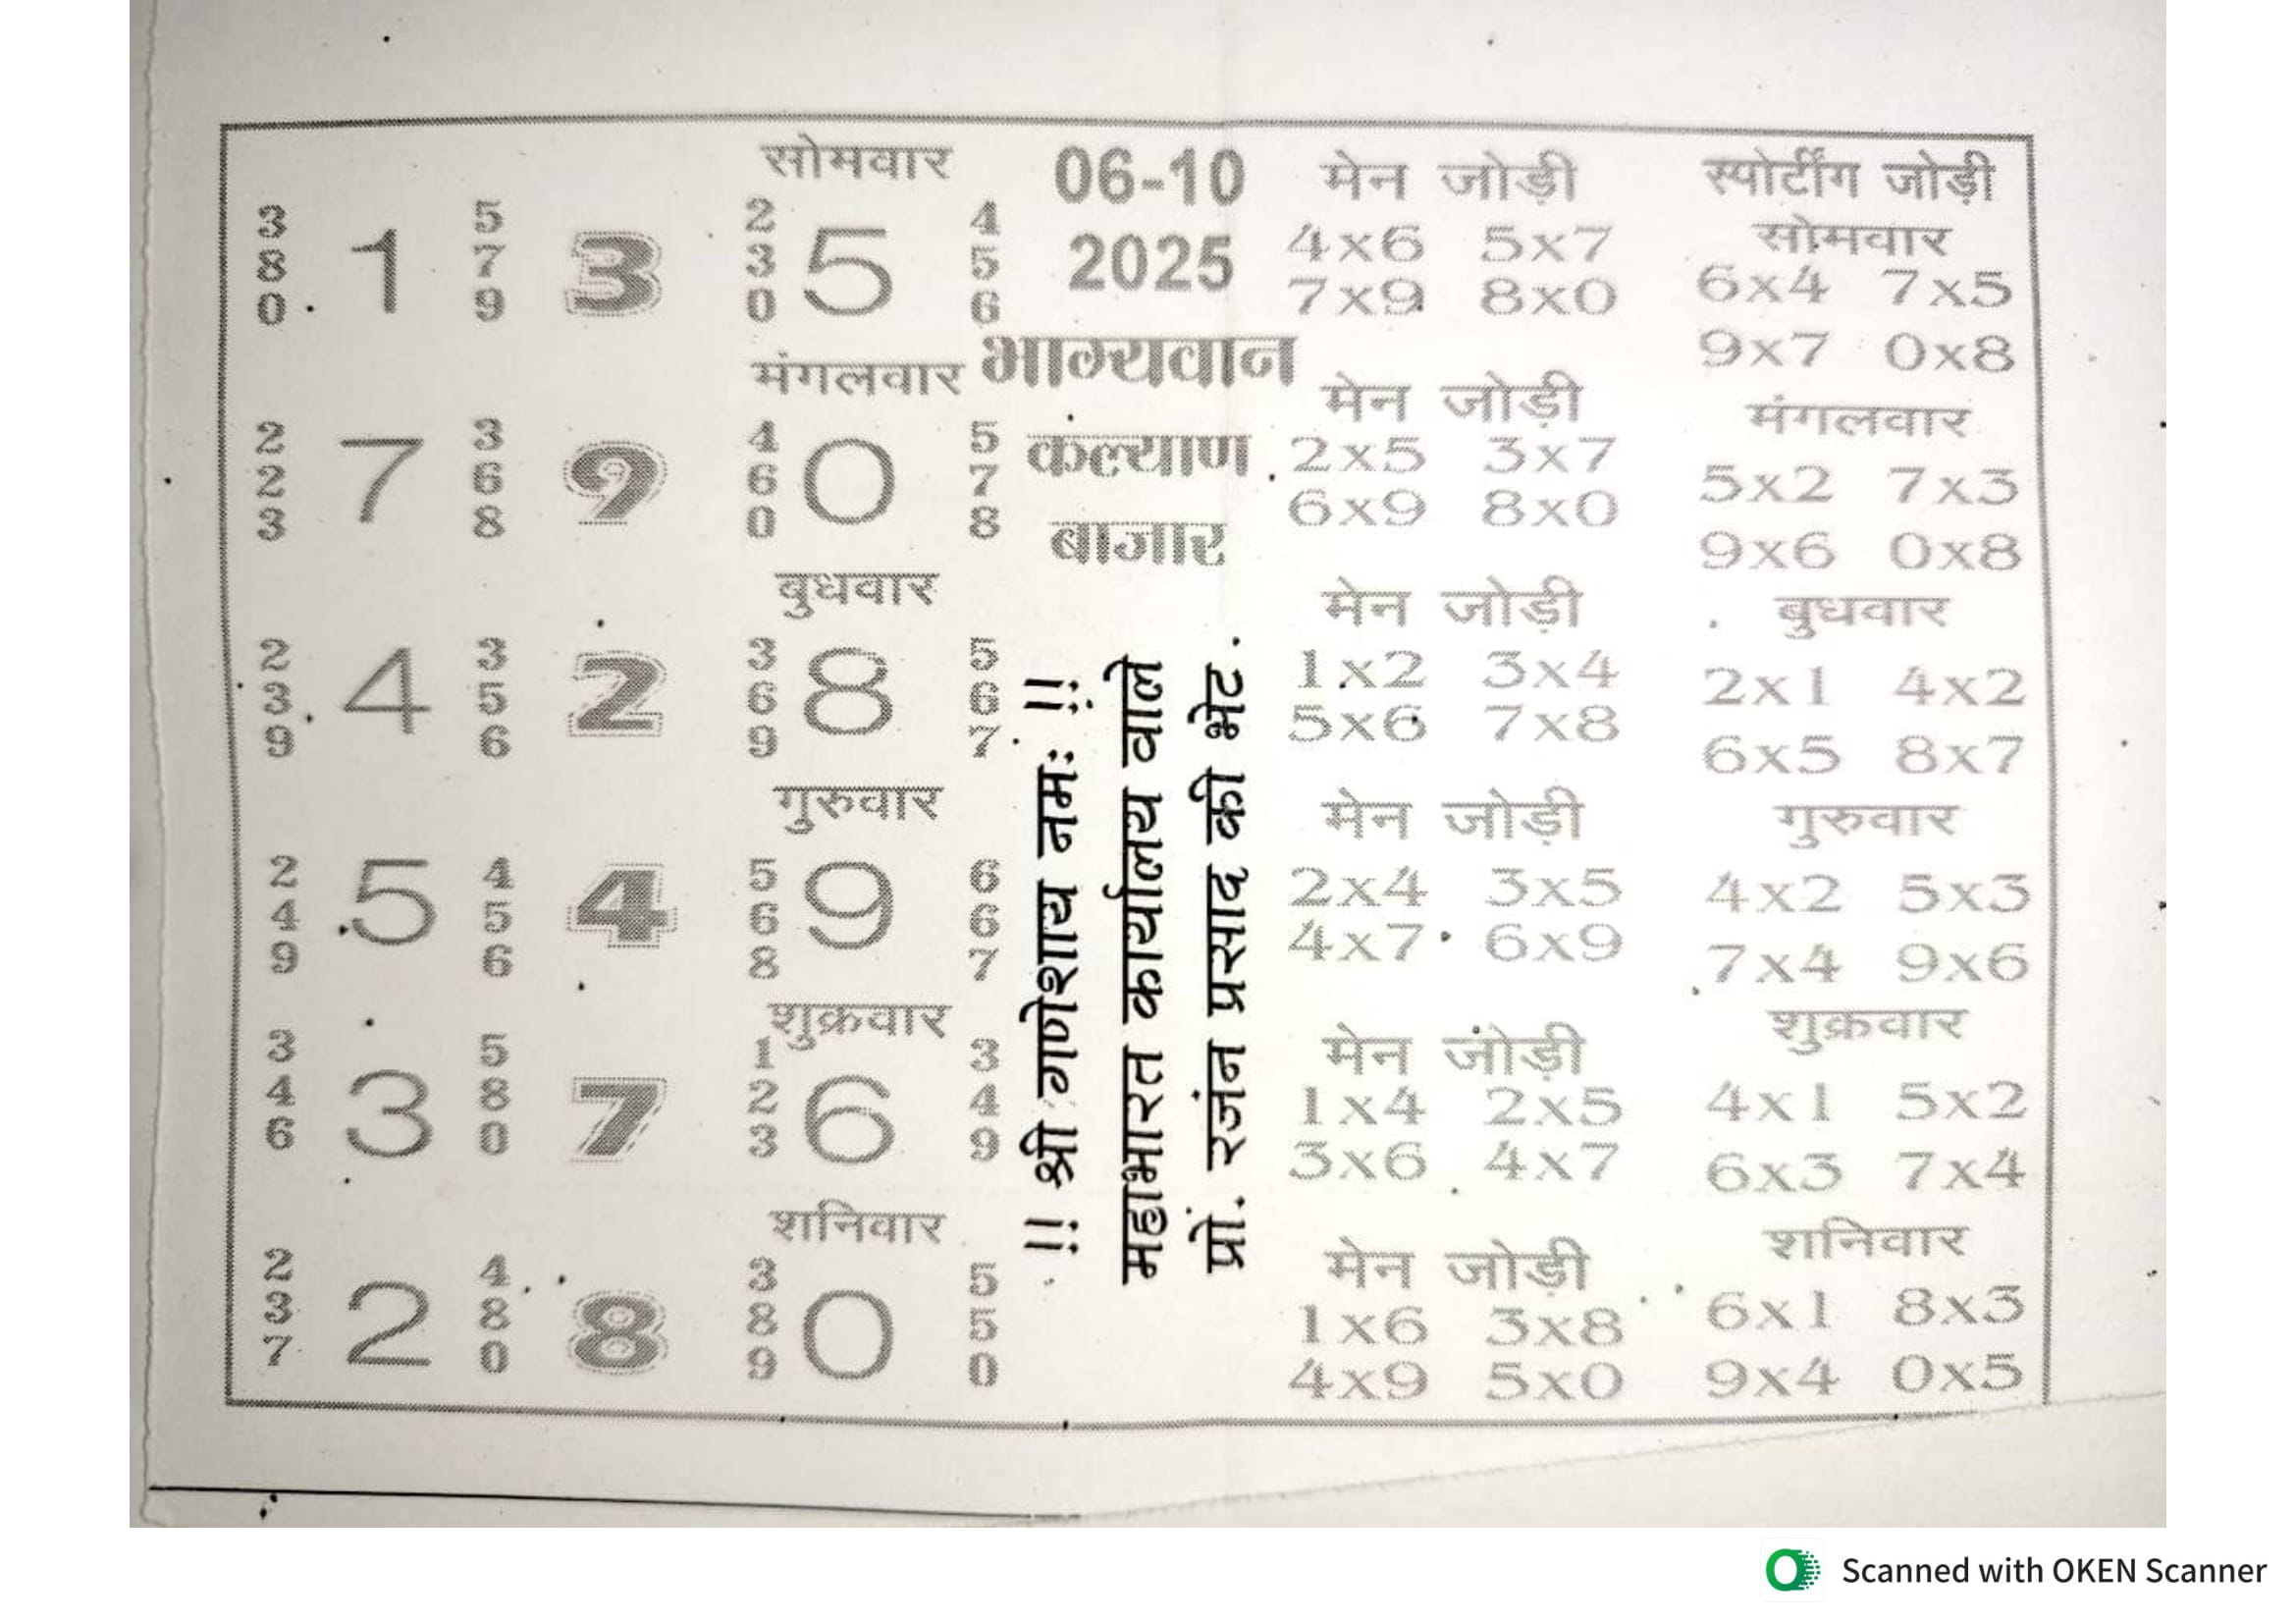 सोमवार
3 8 0
1
5 7 9
3
2 3 0
5
4 5 6
मंगलवार
2 2 3
7
3 6 8
9
4 6 0
0
5 7 8
बुधवार
2 3 9
4
3 5 6
2
3 6 9
8
5 6 7
गुरुवार
2 4 9
5
4 5 6
4
5 6 8
9
6 6 7
शुक्रवार
3 4 6
3
5 8 0
7
1 2 3
6
3 4 9
शनिवार
2 3 7
2
4 8 0
8
3 8 9
0
5 5 0
06-10
2025
भाग्यवान
कल्याण
बाजार
!! श्री गणेशाय नमः !!
महाभारत कार्यालय वाले
प्रों. रजंन प्रसाद की भेट.
मेन जोड़ी
4x6 5x7
7x9 8x0
मेन जोड़ी
2x5 3x7
6x9 8x0
मेन जोड़ी
1x2 3x4
5x6 7x8
मेन जोड़ी
2x4 3x5
4x7 6x9
मेन जोड़ी
1x4 2x5
3x6 4x7
मेन जोड़ी
1x6 3x8
4x9 5x0
स्पोर्टींग जोड़ी
सोमवार
6x4 7x5
9x7 0x8
मंगलवार
5x2 7x3
9x6 0x8
बुधवार
2x1 4x2
6x5 8x7
गुरुवार
4x2 5x3
7x4 9x6
शुक्रवार
4x1 5x2
6x3 7x4
शनिवार
6x1 8x3
9x4 0x5
Scanned with OKEN Scanner